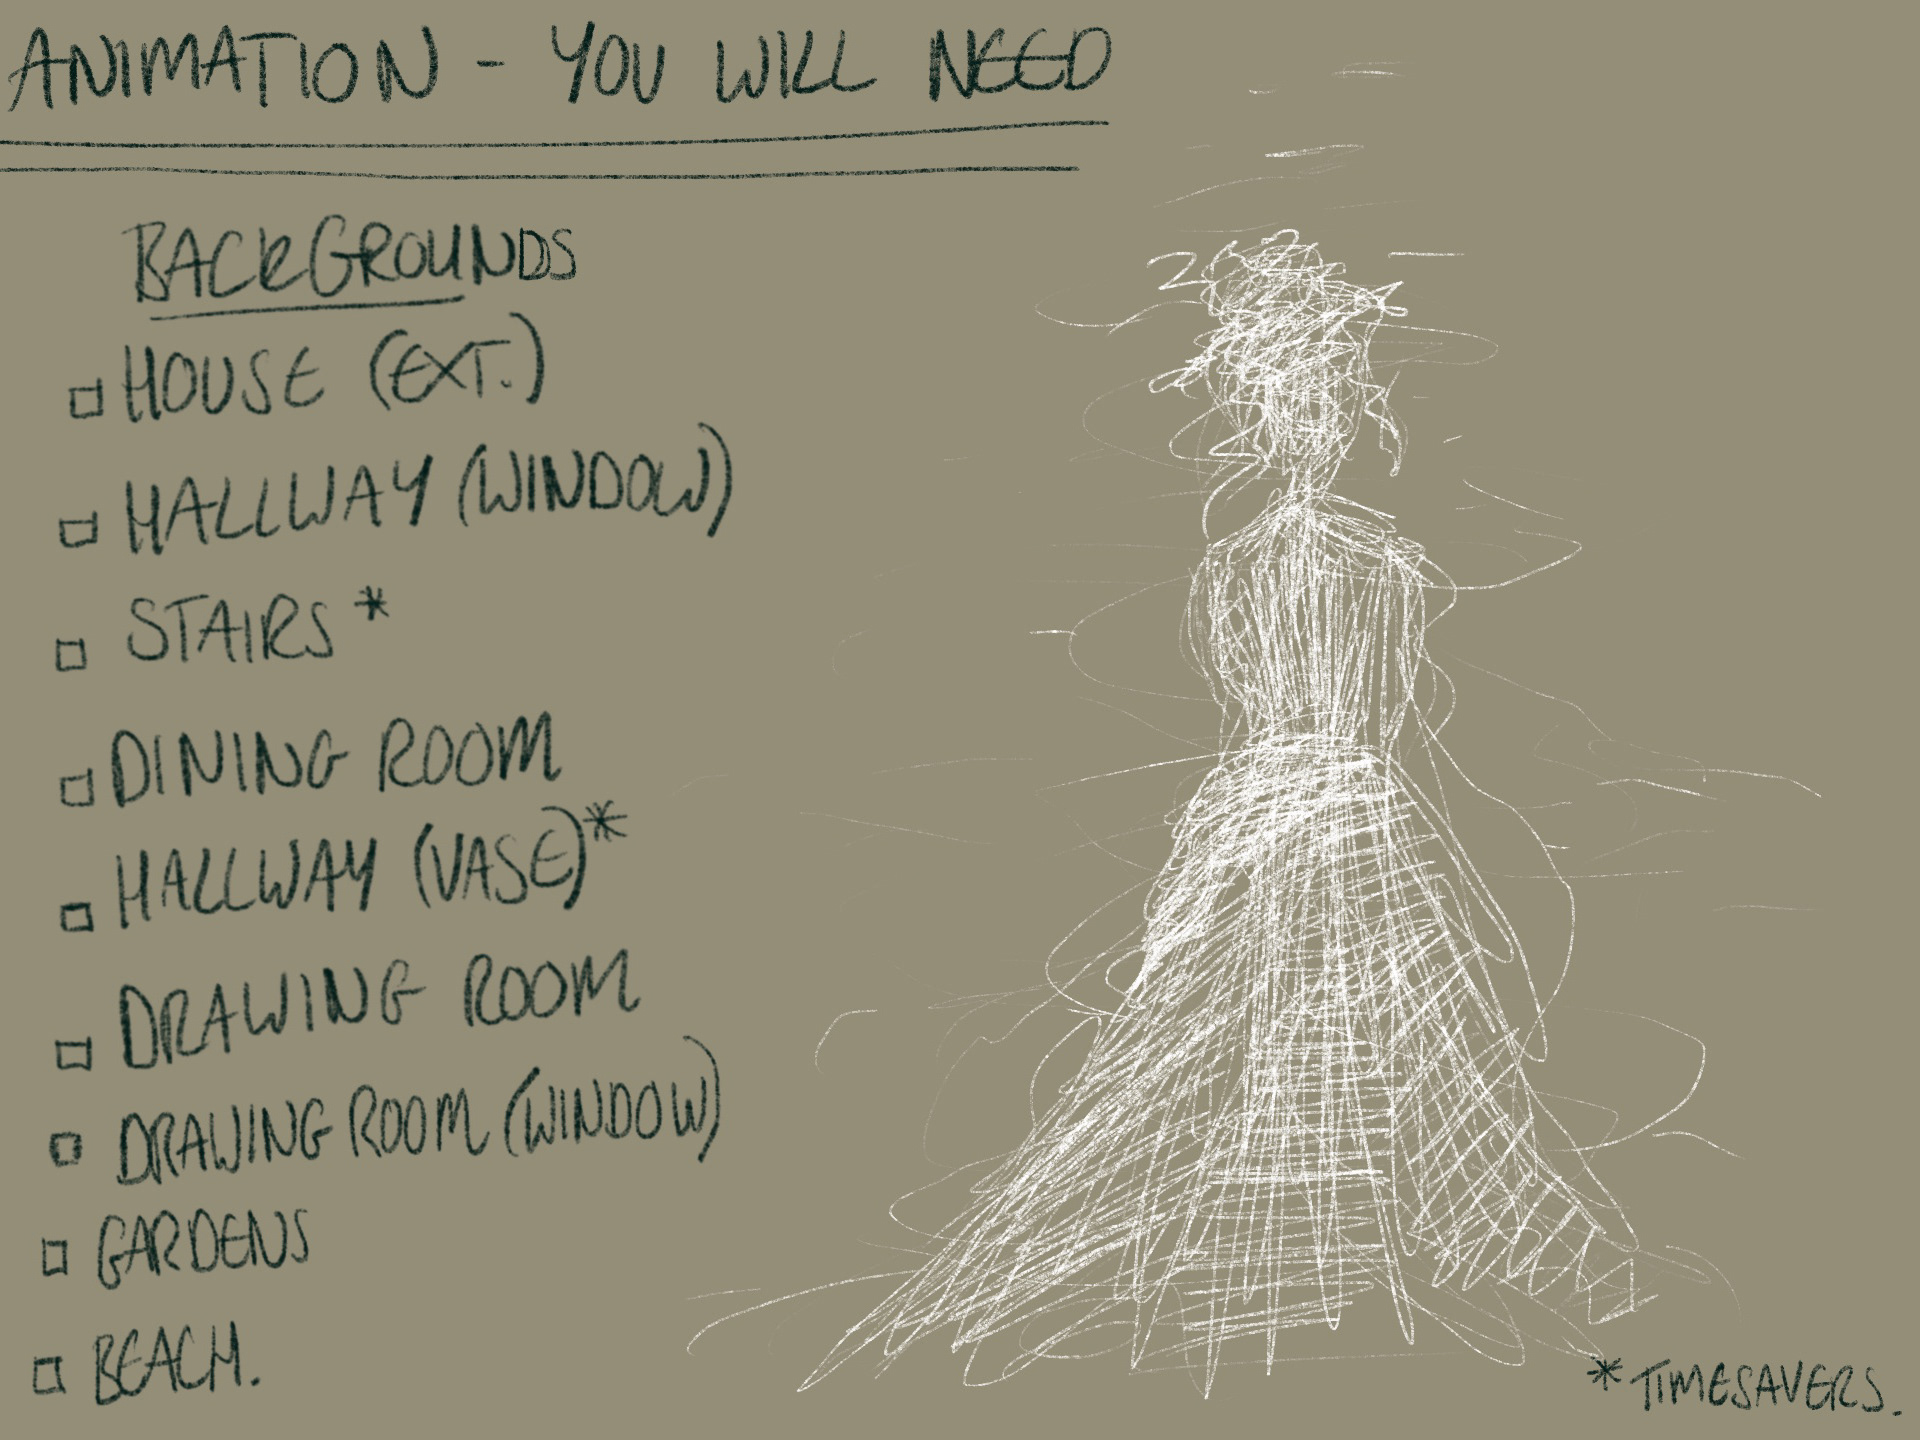 ANIMATION - YOU WILL NEED
BACKGROUNDS
HOUSE (EXT.)
HALLWAY (WINDOW)
STAIRS *
DINING ROOM
HALLWAY (VASE)*
DRAWING ROOM
DRAWING ROOM (WINDOW)
GARDENS
BEACH.
* TIMESAVERS.